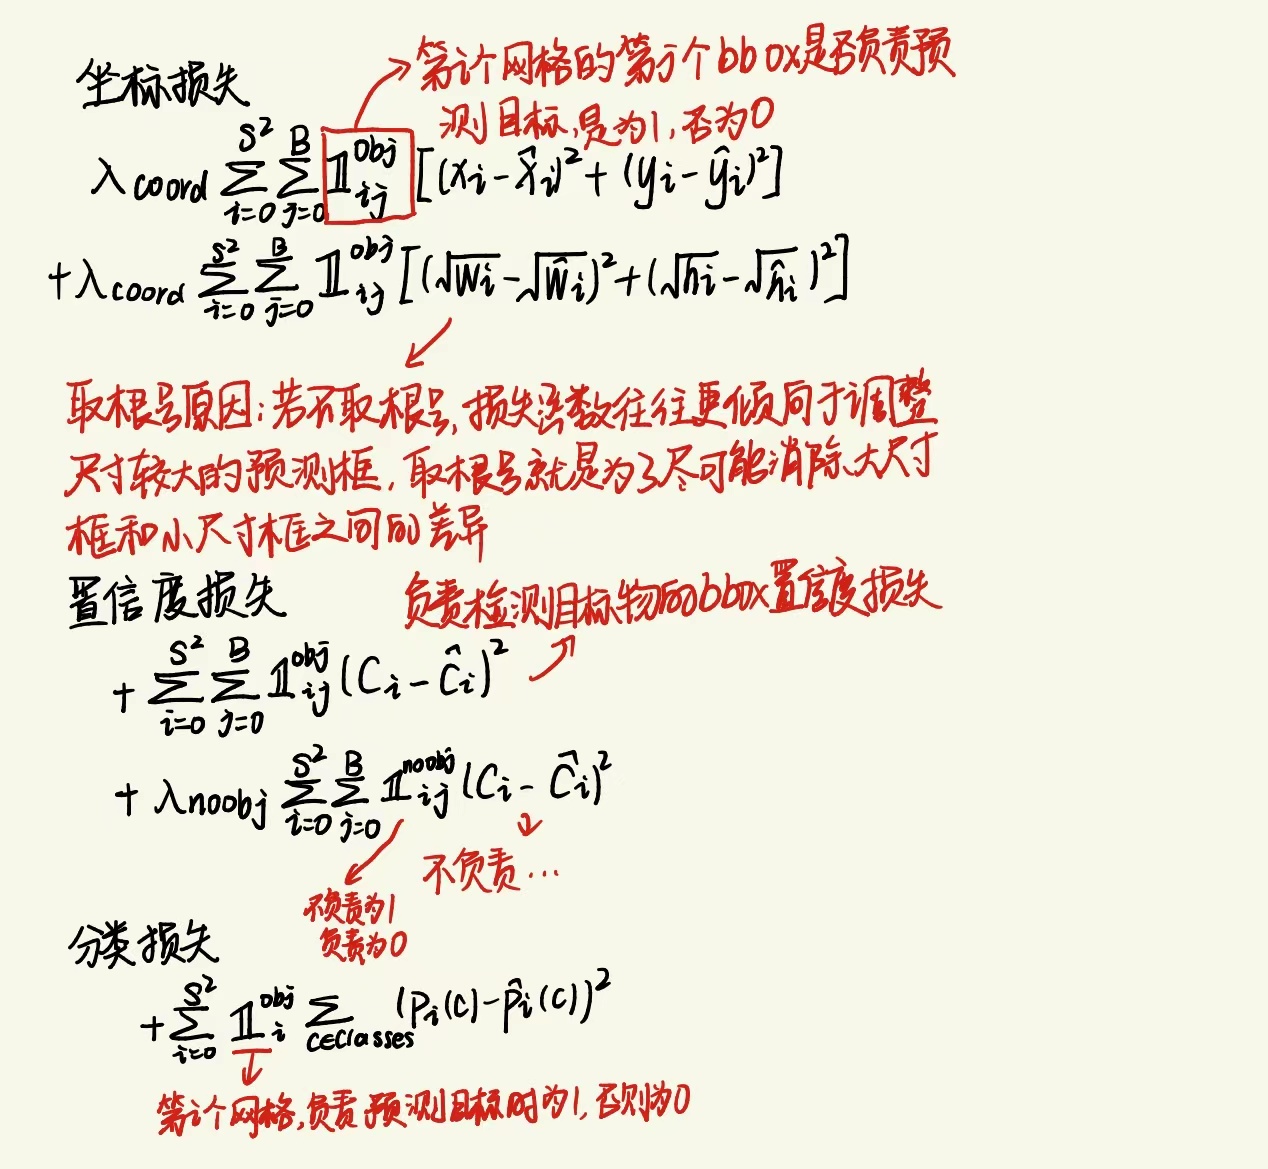 坐标损失
第i个网格的第j个bbox是否负责预
测目标,是为1,否为0
λcoord Σ_{i=0}^{S²} Σ_{j=0}^{B} 𝟙_{ij}^{obj} [(xi-x̂i)²+(yi-ŷi)²]
+λcoord Σ_{i=0}^{S²} Σ_{j=0}^{B} 𝟙_{ij}^{obj} [(√wi-√ŵi)²+(√hi-√ĥi)²]
取根号原因:若不取根号,损失函数往往更倾向于调整
尺寸较大的预测框,取根号就是为了尽可能消除大尺寸
框和小尺寸框之间的差异
置信度损失
负责检测目标物的bbox置信度损失
+ Σ_{i=0}^{S²} Σ_{j=0}^{B} 𝟙_{ij}^{obj} (Ci-Ĉi)²
+ λnoobj Σ_{i=0}^{S²} Σ_{j=0}^{B} 𝟙_{ij}^{noobj} (Ci-Ĉi)²
不负责…
不负责为1
负责为0
分类损失
+Σ_{i=0}^{S²} 𝟙_{i}^{obj} Σ_{c∈classes} (pi(c)-p̂i(c))²
第i个网格,负责预测目标时为1,否则为0